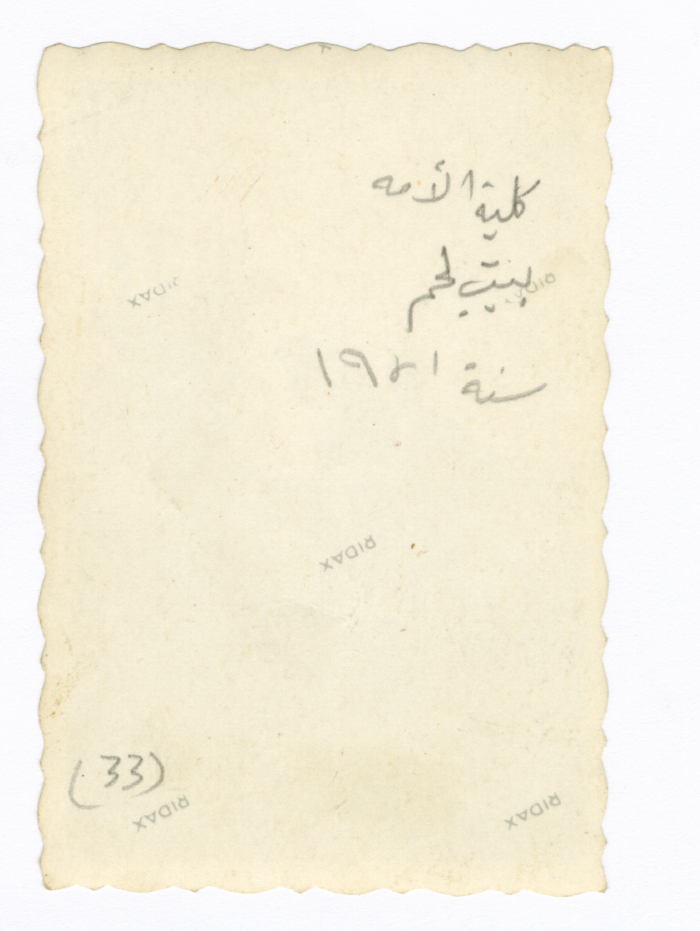 كلية الأمه
بيت لحم
سنة ١٩٥١
RIDAX
RIDAX
RIDAX
(33)
RIDAX
RIDAX